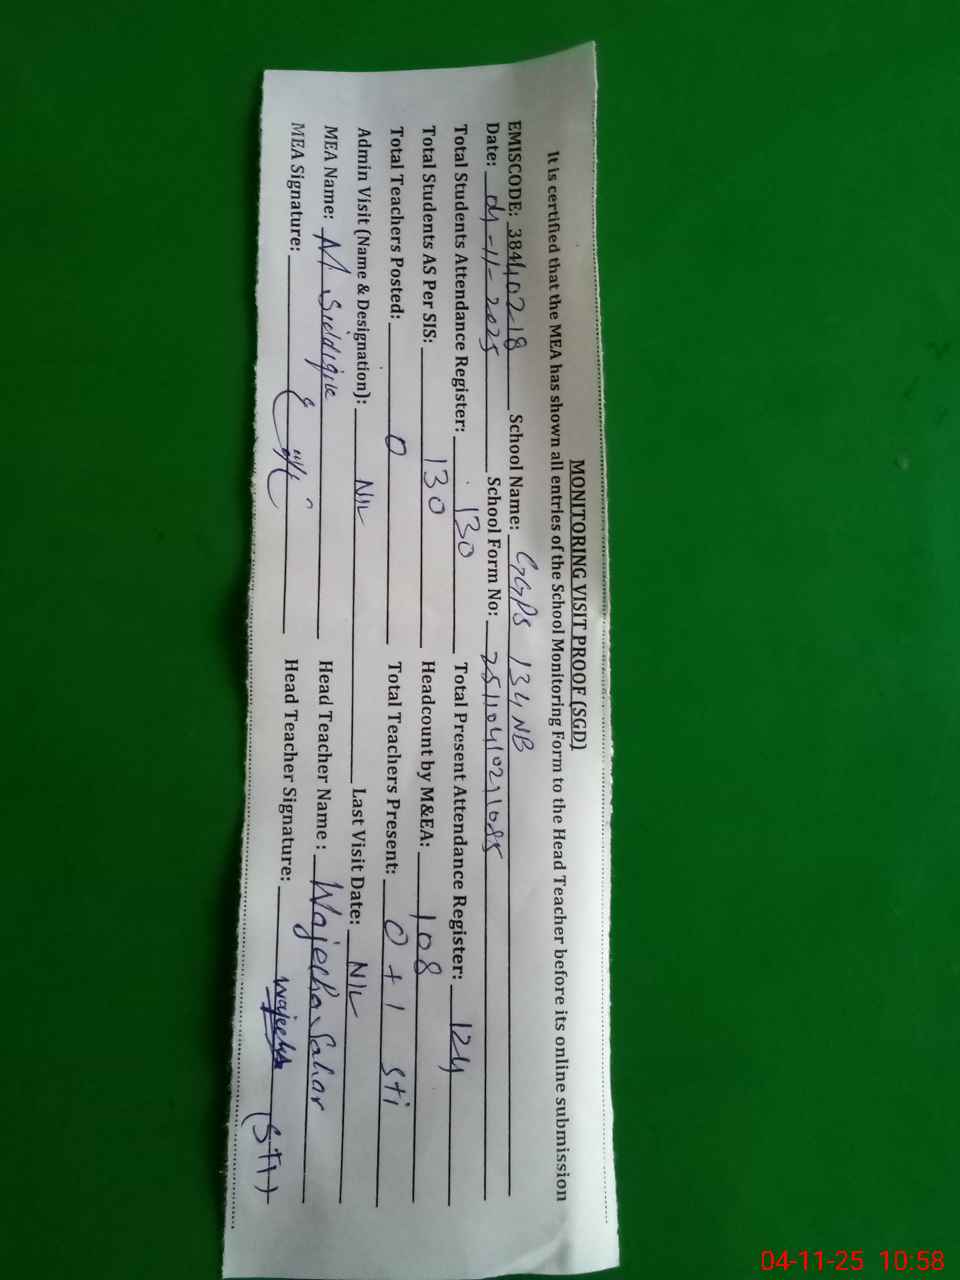 MONITORING VISIT PROOF (SGD)
It is certified that the MEA has shown all entries of the School Monitoring Form to the Head Teacher before its online submission
EMISCODE: 38410218 School Name: GGPS 134 NB
Date: 04-11-2025 School Form No: 25110410211085
Total Students Attendance Register: 130 Total Present Attendance Register: 124
Total Students AS Per SIS: 130 Headcount by M&EA: 108
Total Teachers Posted: 0 Total Teachers Present: 0 + 1 sti
Admin Visit (Name & Designation): NIL Last Visit Date: NIL
MEA Name: M Siddique Head Teacher Name : Wajeeha Sahar
MEA Signature: Head Teacher Signature: Wajeeha (STI)
04-11-25 10:58